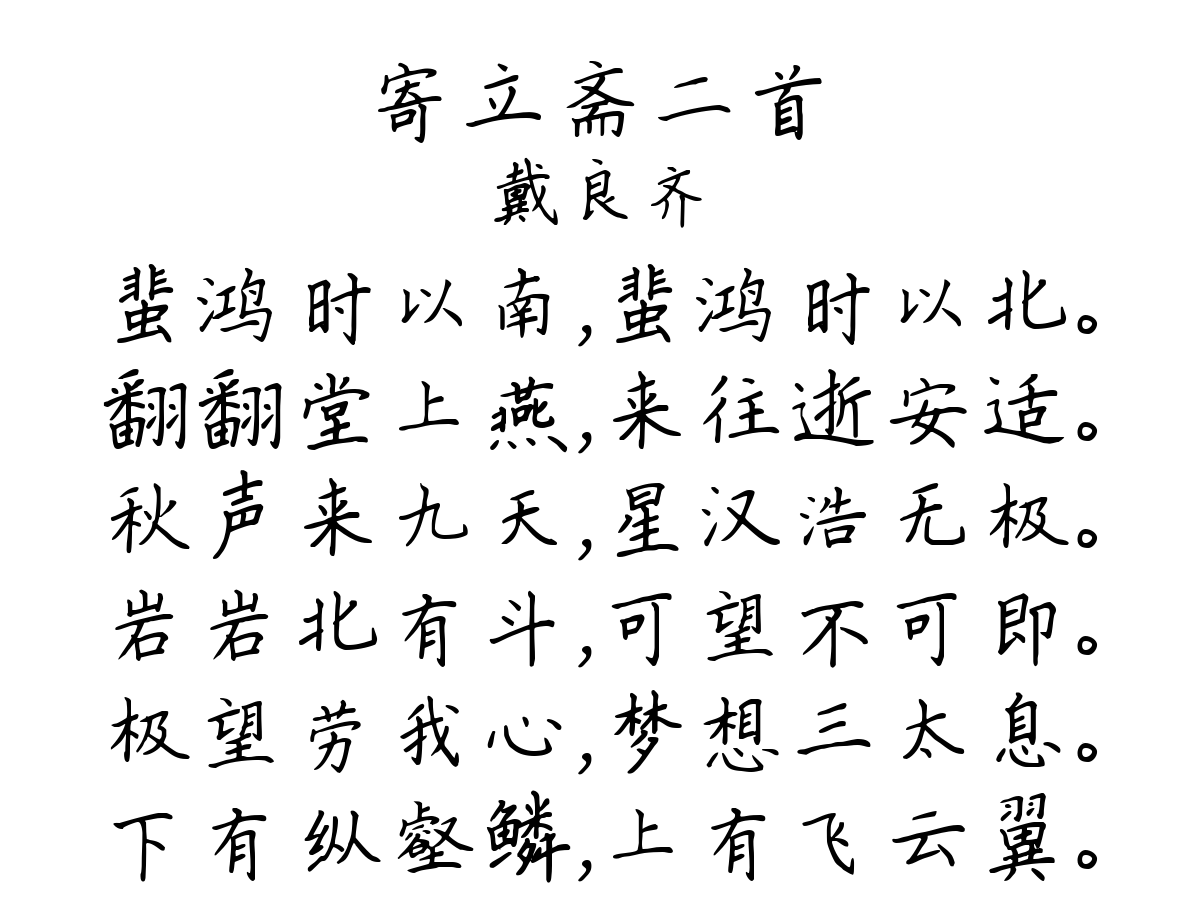 寄立斋二首
戴良齐
蜚鸿时以南,蜚鸿时以北。
翻翻堂上燕,来往逝安适。
秋声来九天,星汉浩无极。
岩岩北有斗,可望不可即。
极望劳我心,梦想三太息。
下有纵壑鳞,上有飞云翼。